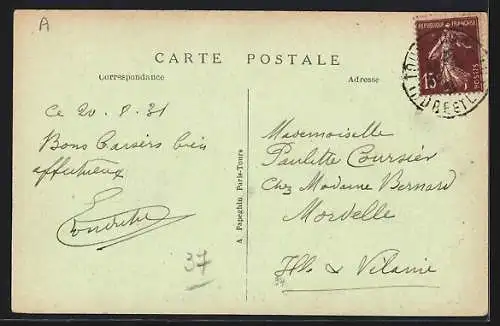 A
CARTE POSTALE
Correspondance
Adresse
REPUBLIQUE FRANÇAISE
15
POSTES
Ce 20-8-31
Bons Baisers bien
affectueux
A. Papeghin, Paris-Tours
Mademoiselle
Paulette Coursier
Chez Madame Bernard
Mordelle
Ille & Vilaine
37